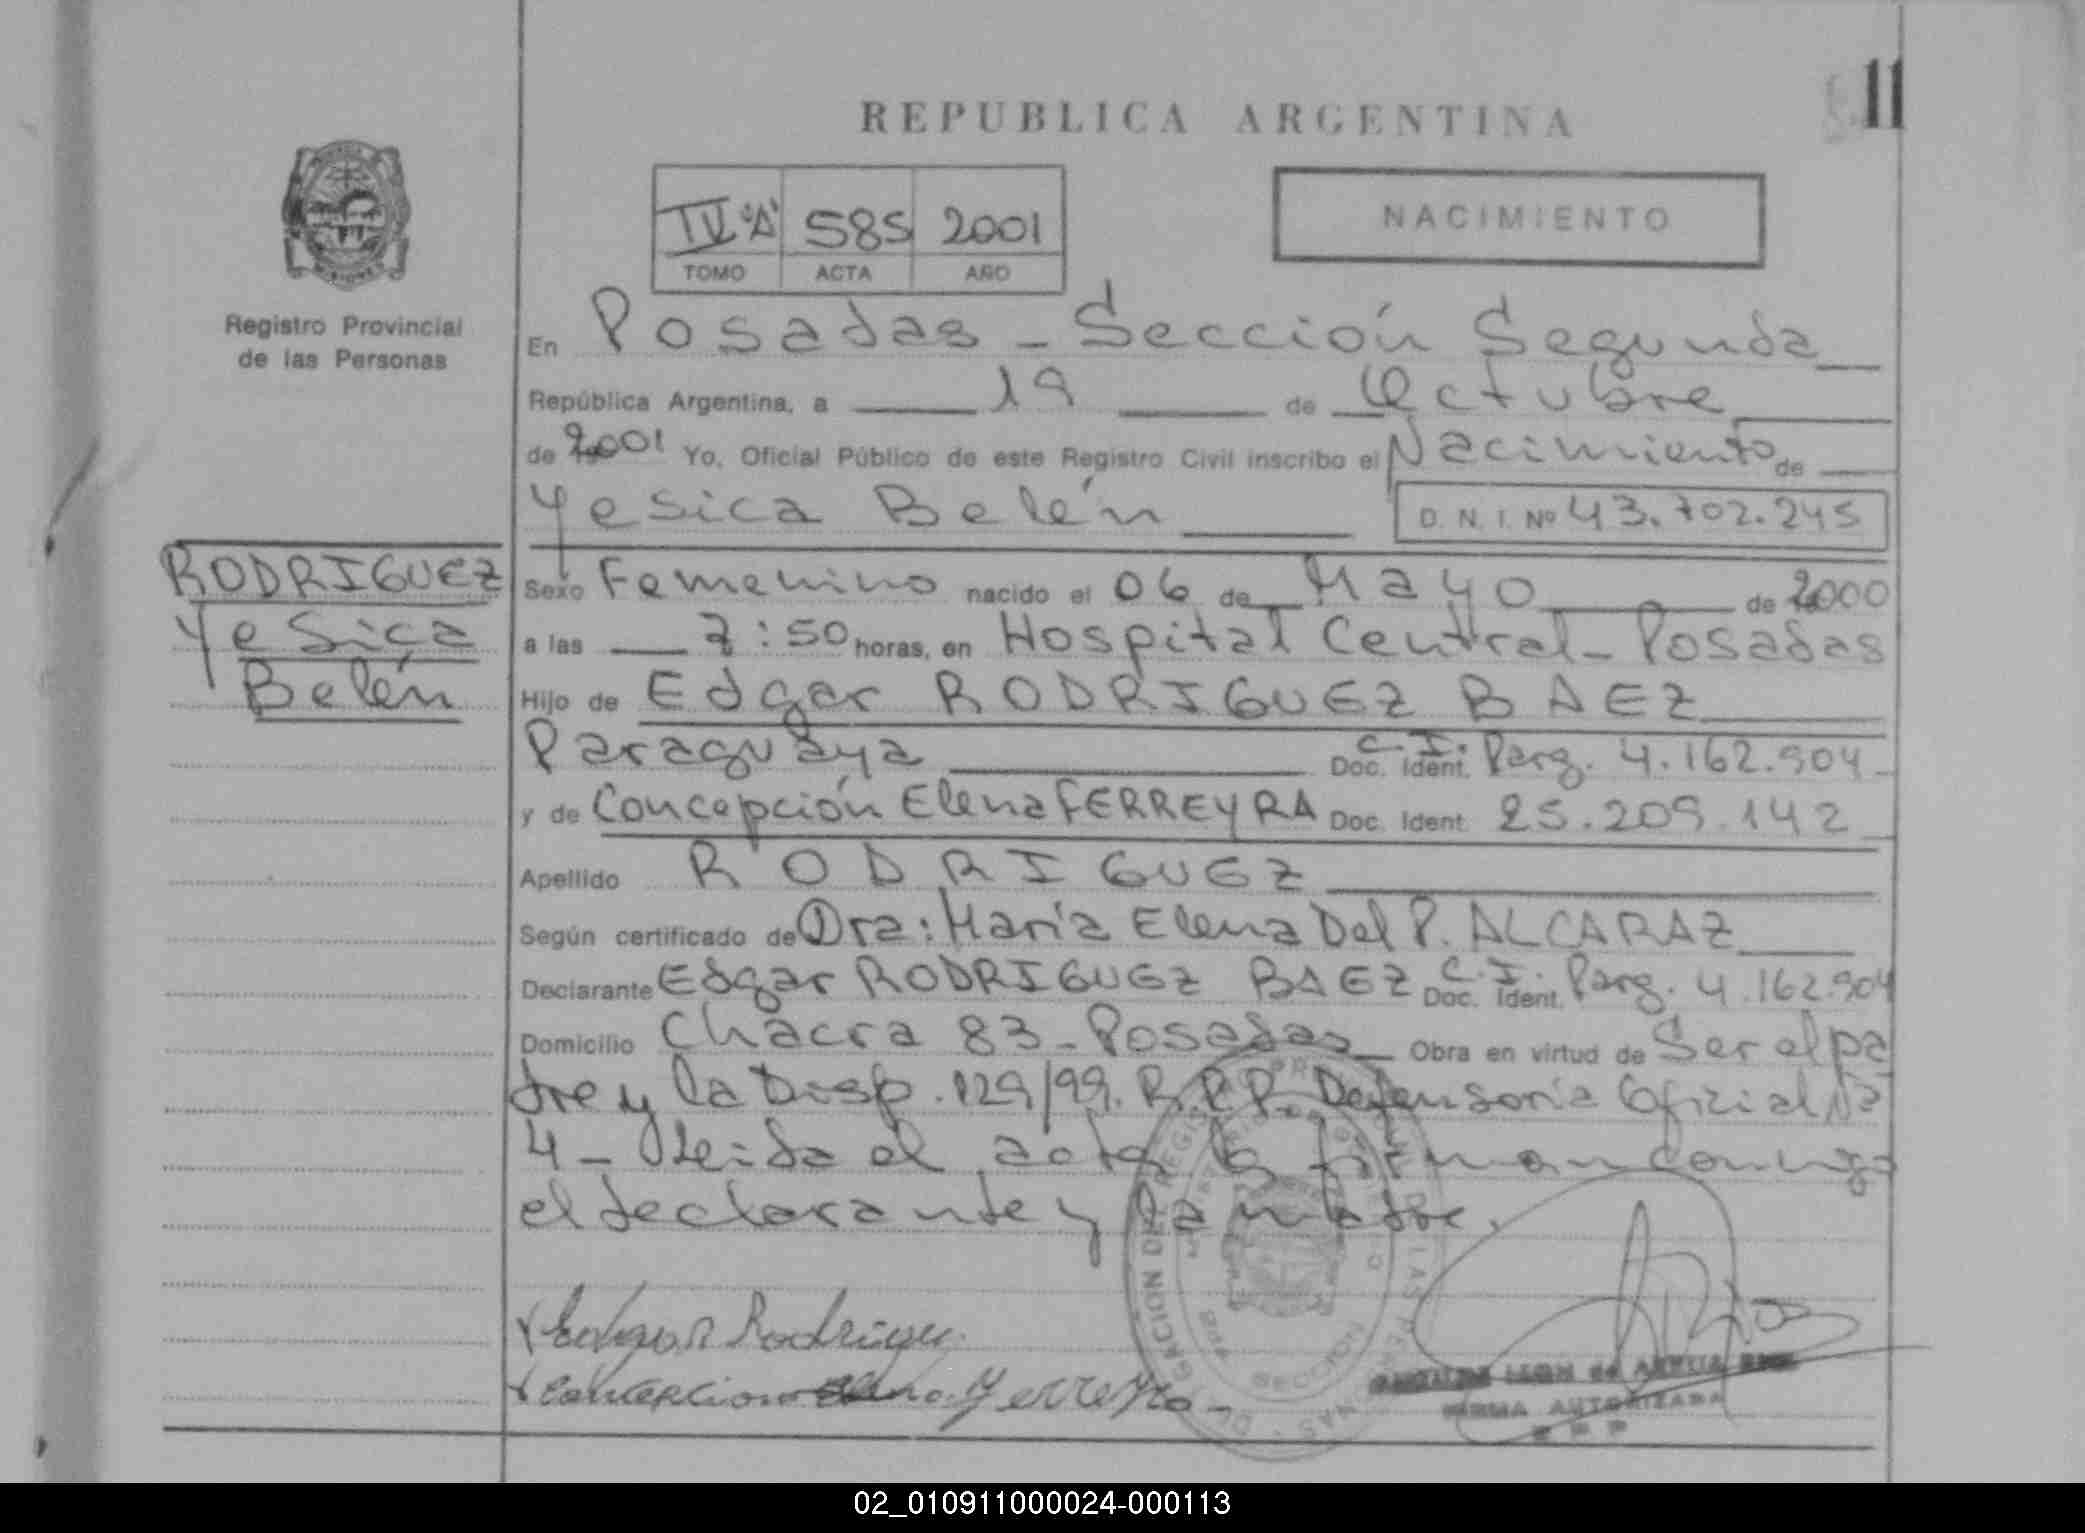 11
REPUBLICA ARGENTINA
IV "A" 585 2001
TOMO ACTA AÑO
NACIMIENTO
Registro Provincial
de las Personas
En Posadas - Sección Segunda
República Argentina, a 19 de Octubre
de 2001 Yo, Oficial Público de este Registro Civil inscribo el Nacimiento de
Yesica Belén D. N. I. Nº 43.702.245
RODRIGUEZ
Yesica
Belén
Sexo Femenino nacido el 06 de Mayo de 2000
a las 7:50 horas, en Hospital Central - Posadas
Hijo de Edgar RODRIGUEZ BAEZ
Paraguaya C.I. Doc. Ident. Parg. 4.162.904
y de Concepción Elena FERREYRA Doc. Ident. 25.209.142
Apellido RODRIGUEZ
Según certificado de Dra: María Elena Del P. ALCARAZ
Declarante Edgar RODRIGUEZ BAEZ C.I. Doc. Ident. Parg. 4.162.904
Domicilio Chacra 83 - Posadas Obra en virtud de Ser el pa
dre y la Disp. 129/99. R.P.P. Defensoría Oficial Nº
4 - Leida el acta la firman conmigo
el declarante y la madre.
Edgar Rodriguez
Concepcion Elena Ferreyra
FIRMA AUTORIZADA
R P P
02_010911000024-000113